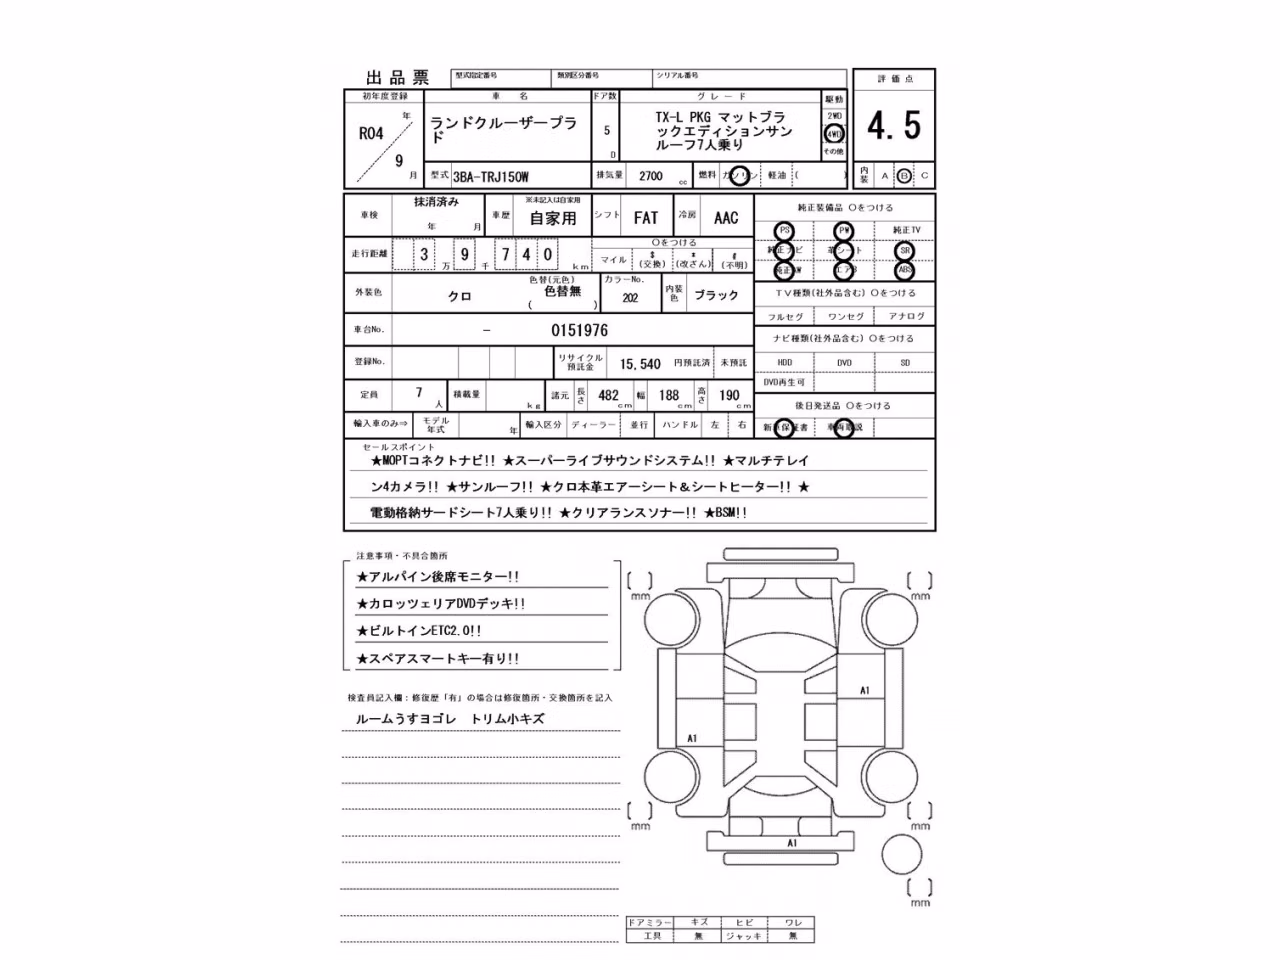 出品票
型式指定番号 類別区分番号 シリアル番号
評価点
4.5
初年度登録 車名 ドア数 グレード 駆動
R04 年
9 月
ランドクルーザープラ
ド
5 D
TX-L PKG マットブラ
ックエディションサン
ルーフ7人乗り
2WD
4WD
その他
型式 3BA-TRJ150W 排気量 2700 cc 燃料 ガソリン 軽油 ( )
内装 A B C
車検 抹消済み 年 月
車歴 ※未記入は自家用
自家用
シフト FAT 冷房 AAC
走行距離 3 万 9 千 7 4 0 km
○をつける
マイル $ (交換) * (改ざん) # (不明)
外装色 クロ 色替(元色)
色替無
( )
カラーNo.
202
内装色 ブラック
車台No. - 0151976
登録No. リサイクル預託金 15,540 円預託済 未預託
定員 7 人 積載量 kg 諸元 長さ 482 cm 幅 188 cm 高さ 190 cm
輸入車のみ⇒ モデル年式 年 輸入区分 ディーラー 並行 ハンドル 左 右
純正装備品 ○をつける
PS PW 純正TV
純正ナビ 革シート SR
純正AW エアB ABS
TV種類(社外品含む) ○をつける
フルセグ ワンセグ アナログ
ナビ種類(社外品含む) ○をつける
HDD DVD SD
DVD再生可
後日発送品 ○をつける
新車保証書 車両取説
セールスポイント
★MOPTコネクトナビ!! ★スーパーライブサウンドシステム!! ★マルチテレイ
ン4カメラ!! ★サンルーフ!! ★クロ本革エアーシート＆シートヒーター!! ★
電動格納サードシート7人乗り!! ★クリアランスソナー!! ★BSM!!
注意事項・不具合箇所
★アルパイン後席モニター!!
★カロッツェリアDVDデッキ!!
★ビルトインETC2.0!!
★スペアスマートキー有り!!
検査員記入欄：修復歴「有」の場合は修復箇所・交換箇所を記入
ルームうすヨゴレ トリム小キズ
mm mm
A1
A1
mm mm
A1
mm
ドアミラー キズ ヒビ ワレ
工具 無 ジャッキ 無